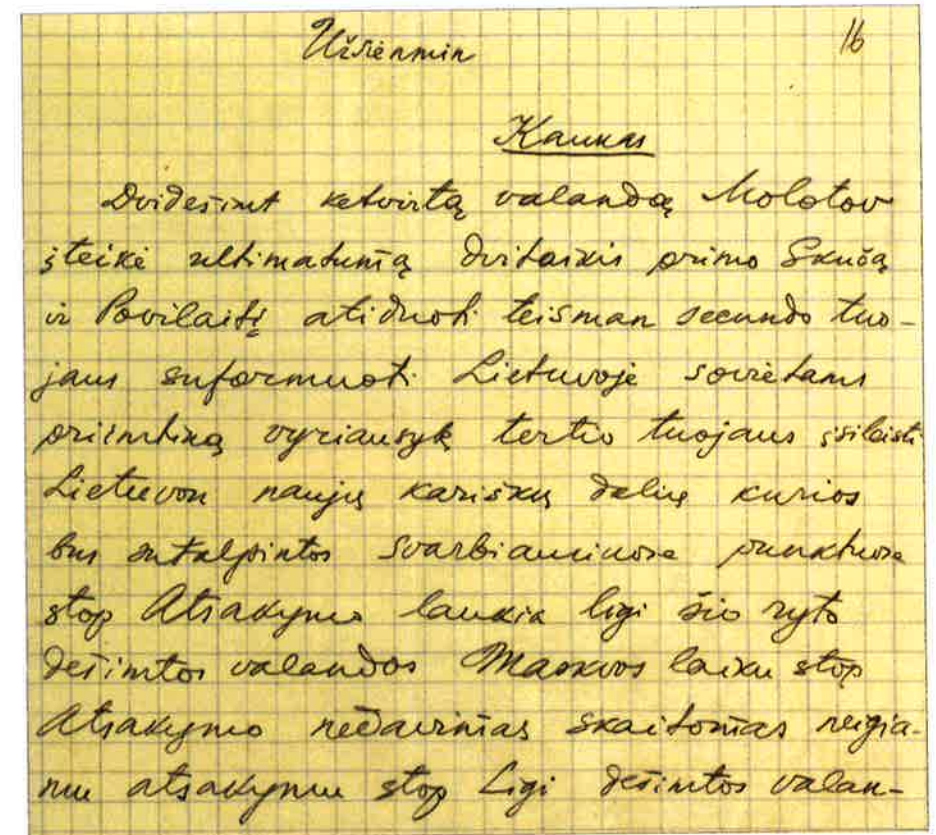 Užsienmin 16
Kaunas
Dvidešimt ketvirtą valandą Molotov
įteikė ultimatumą dvitaškis primo Skučą
ir Povilaitį atiduoti teisman secundo tuo-
jaus suformuoti Lietuvoje sovietams
priimtiną vyriausybę tertio tuojaus įsileisti
Lietuvon naujų kariškų dalių kurios
bus sutalpintos svarbiausiuose punktuose
stop Atsakymo laukia ligi šio ryto
dešimtos valandos Maskvos laiku stop
Atsakymo nedavimas skaitomas neigia-
mu atsakymu stop Ligi dešimtos valan-